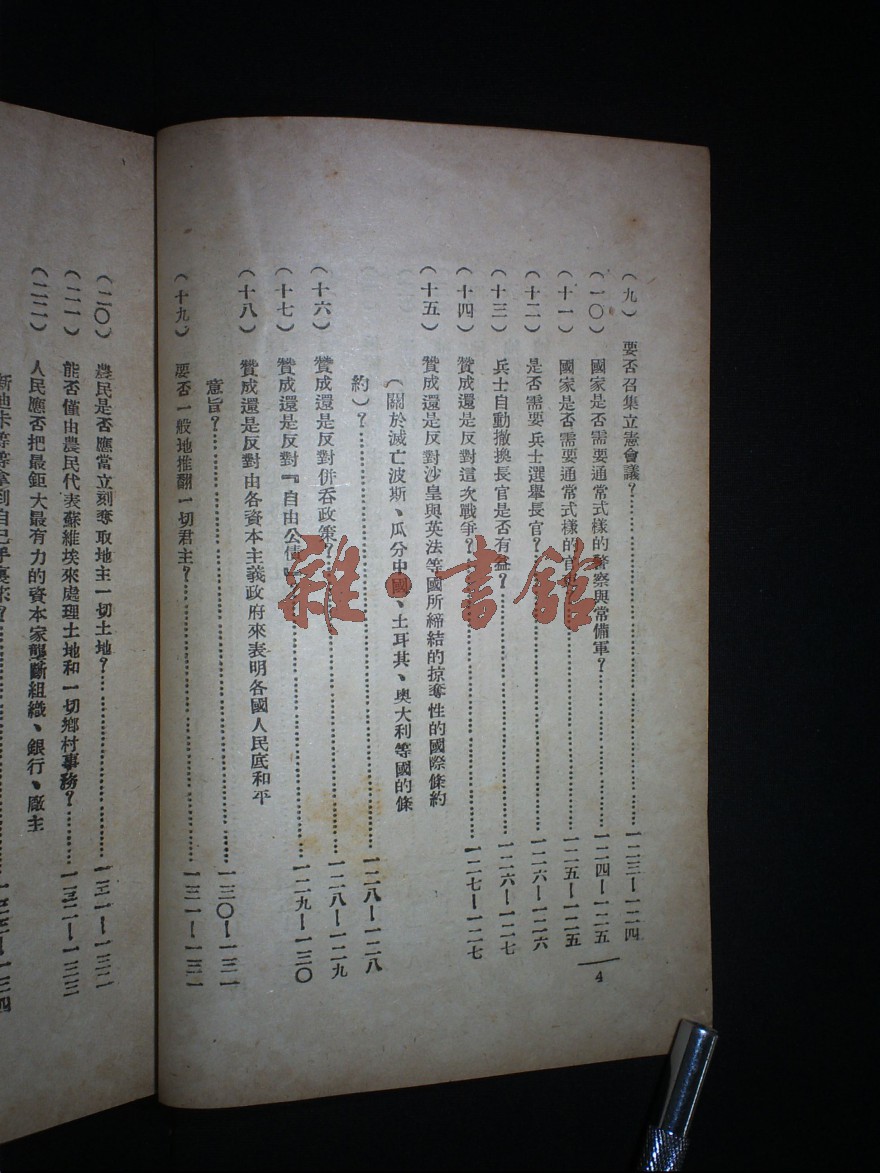 (九) 要否召集立憲會議?……一二三—一二四
(一〇) 國家是否需要通常式樣的警察與常備軍?……一二四—一二五
(十一) 國家是否需要通常式樣的官……一二五—一二五
(十二) 是否需要兵士選舉長官?……一二六—一二六
(十三) 兵士自動撤換長官是否有益?……一二六—一二七
(十四) 贊成還是反對這次戰爭?……一二七—一二七
(十五) 贊成還是反對沙皇與英法等國所締結的掠奪性的國際條約
(關於滅亡波斯、瓜分中國、土耳其、奧大利等國的條
約)?……一二八—一二八
(十六) 贊成還是反對併吞政策?……一二八—一二九
(十七) 贊成還是反對『自由公債』……一二九—一三〇
(十八) 贊成還是反對由各資本主義政府來表明各國人民底和平
意旨?……一三〇—一三一
(十九) 要否一般地推翻一切君主?……一三一—一三一
4
(二〇) 農民是否應當立刻奪取地主一切土地?……一三一—一三二
(二一) 能否僅由農民代表蘇維埃來處理土地和一切鄉村事務?……一三二—一三三
(二二) 人民應否把最鉅大最有力的資本家壟斷組織、銀行、廠主
新迪卡等等拿到自己手裏來?……一三三—一三四
雜·書館